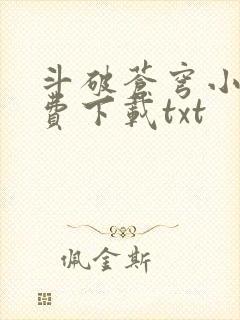 斗破苍穹小
費下載txt
佩金斯